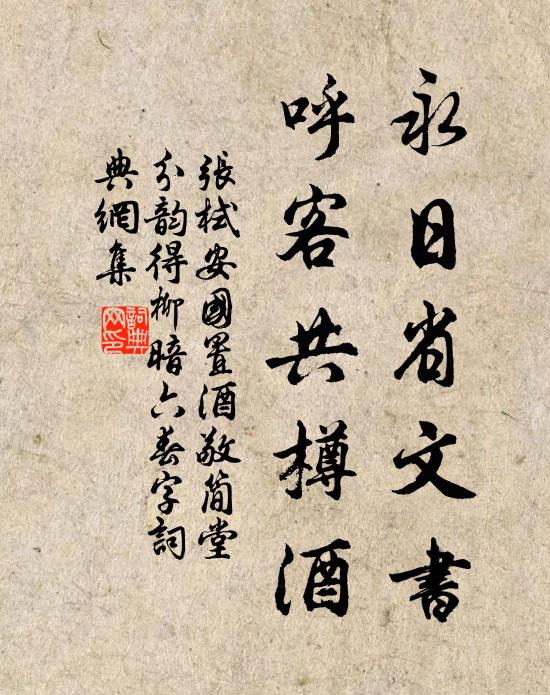 永日省文書
呼客共樽酒
張栻安國置酒敬簡堂
分韵得柳暗六春字詞
典網集
詞典
网印